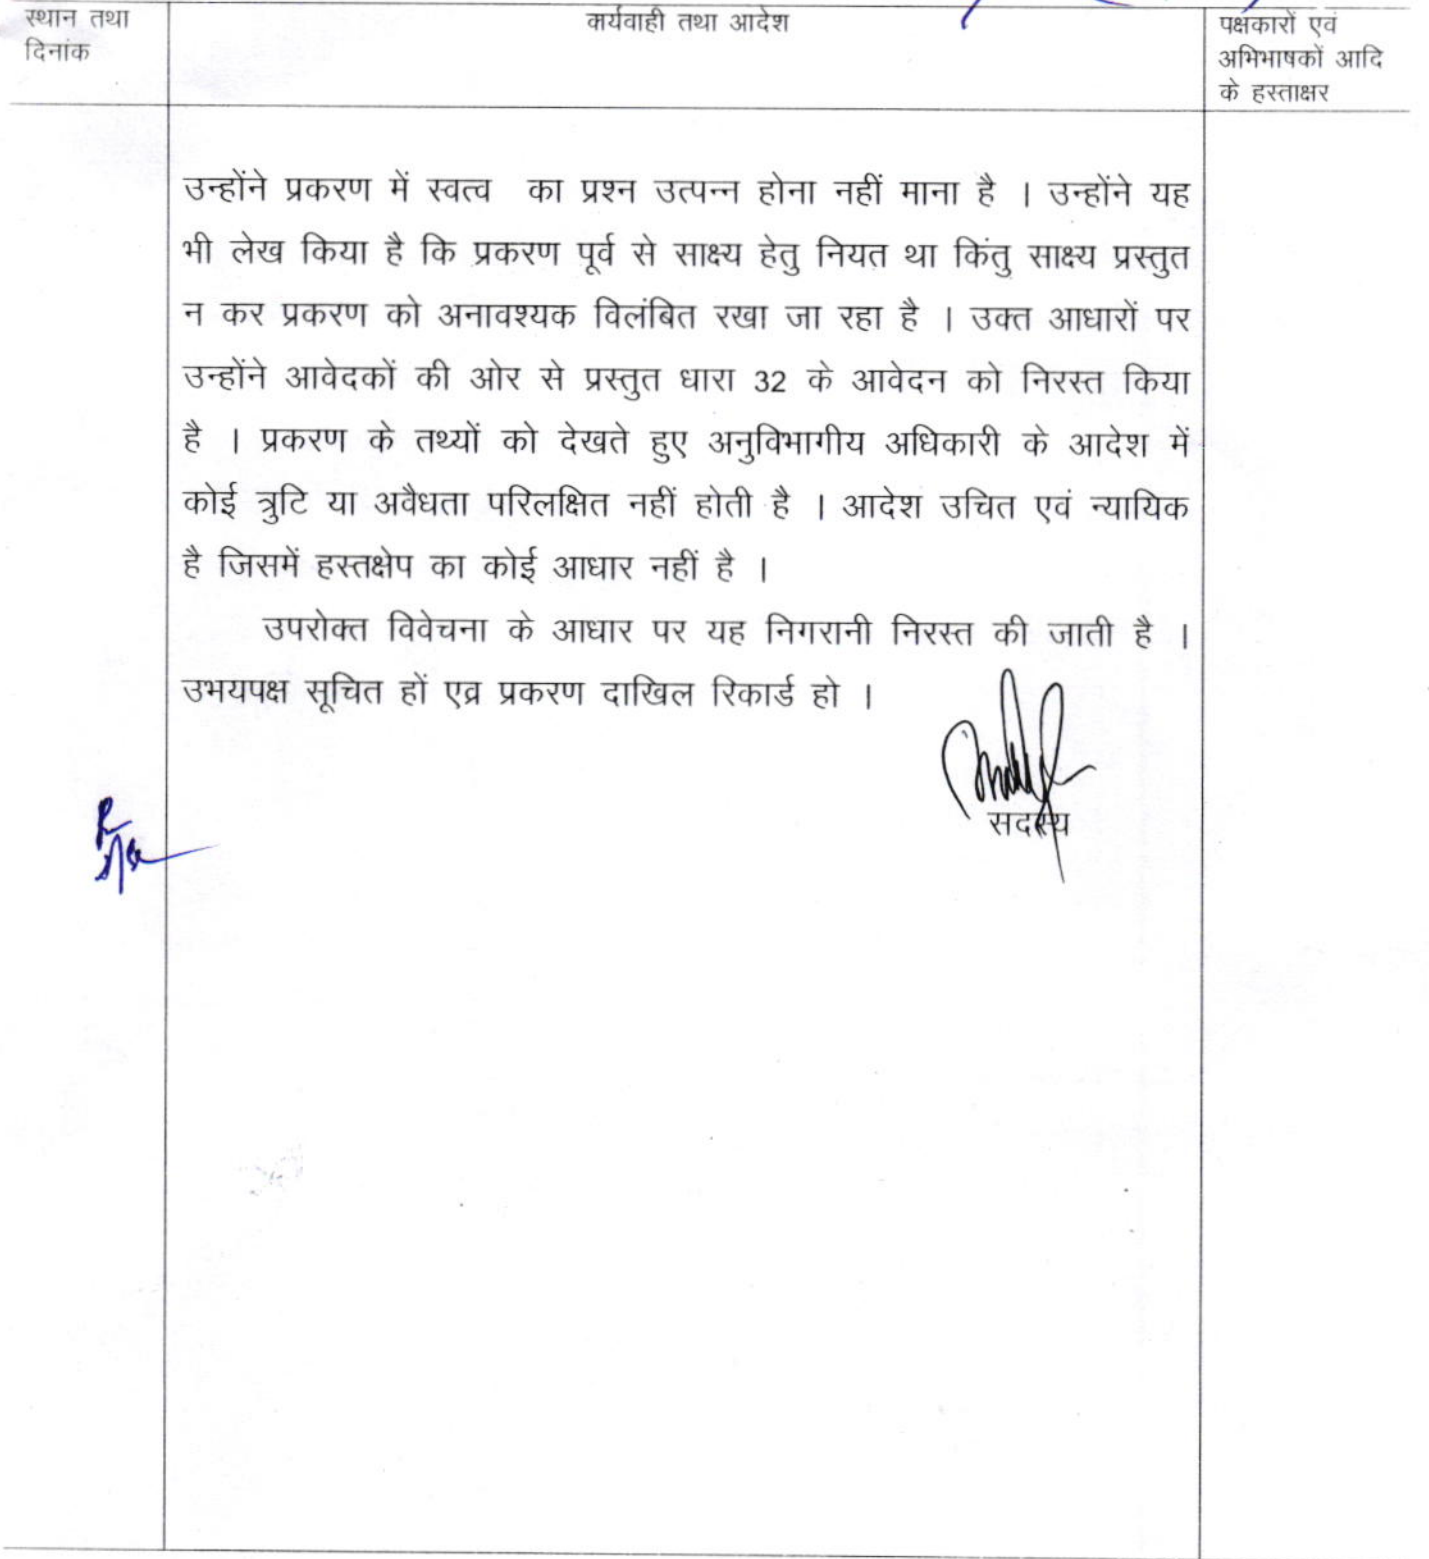 स्थान तथा
दिनांक
कार्यवाही तथा आदेश
पक्षकारों एवं
अभिभाषकों आदि
के हस्ताक्षर
उन्होंने प्रकरण में स्वत्व का प्रश्न उत्पन्न होना नहीं माना है । उन्होंने यह
भी लेख किया है कि प्रकरण पूर्व से साक्ष्य हेतु नियत था किंतु साक्ष्य प्रस्तुत
न कर प्रकरण को अनावश्यक विलंबित रखा जा रहा है । उक्त आधारों पर
उन्होंने आवेदकों की ओर से प्रस्तुत धारा 32 के आवेदन को निरस्त किया
है । प्रकरण के तथ्यों को देखते हुए अनुविभागीय अधिकारी के आदेश में
कोई त्रुटि या अवैधता परिलक्षित नहीं होती है । आदेश उचित एवं न्यायिक
है जिसमें हस्तक्षेप का कोई आधार नहीं है ।
उपरोक्त विवेचना के आधार पर यह निगरानी निरस्त की जाती है ।
उभयपक्ष सूचित हों एव्र प्रकरण दाखिल रिकार्ड हो ।
सदस्य